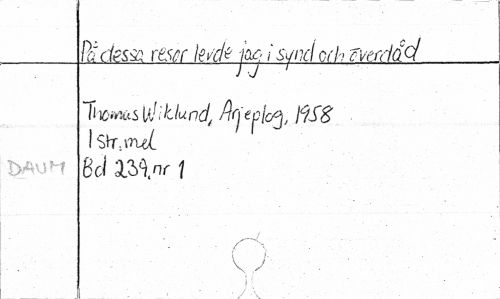 På dessa resor levde jag i synd och överdåd
Thomas Wiklund, Arjeplog, 1958
1 str. mel
DAUM Bd 239, nr 1